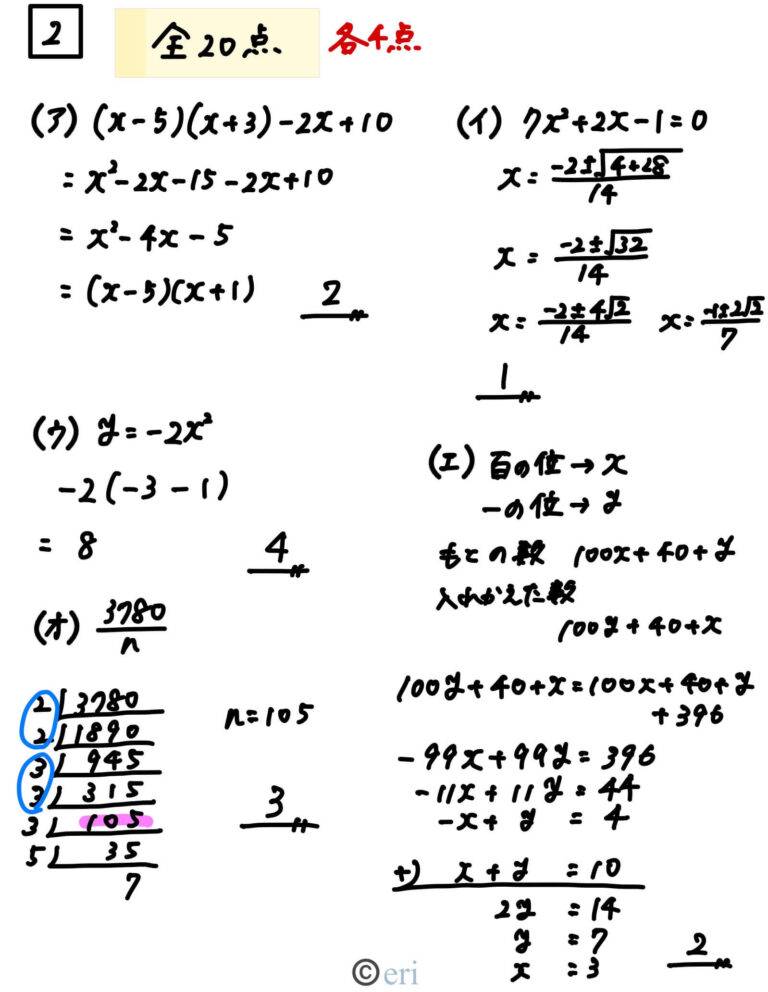 2 全20点 各4点
(ア) (x-5)(x+3)-2x+10
= x²-2x-15-2x+10
= x²-4x-5
= (x-5)(x+1) 2
(イ) 7x²+2x-1=0
x = (-2±√(4+28))/14
x = (-2±√32)/14
x = (-2±4√2)/14 x = (-1±2√2)/7
1
(ウ) y=-2x²
-2(-3-1)
= 8 4
(エ) 百の位→x
一の位→y
もとの数 100x+40+y
入れかえた数
100y+40+x
100y+40+x=100x+40+y
+396
-99x+99y=396
-11x+11y=44
-x+y=4
+) x+y=10
2y=14
y=7
x=3 2
(オ) 3780/n
2 3780
2 1890
3 945
3 315
3 105
5 35
7
n=105
3
©eri